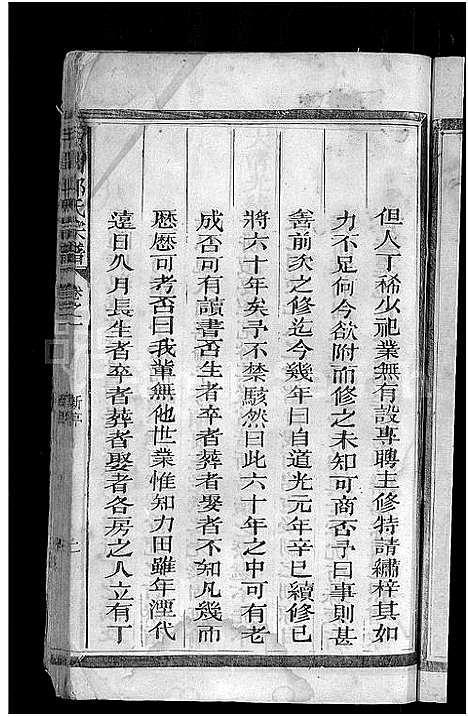 但人丁稀少祀業無有設專聘主修特請繡梓其如
力不足何今欲附而修之未知可商否予曰事則甚
善前次之修迄今幾年曰自道光元年辛巳續修已
將六十年矣予不禁駭然曰此六十年之中可有老
成否可有讀書否生者卒者葬者娶者不知凡幾而
歷歷可考否曰我輩無他世業惟知力田雖年湮代
遠日久月長生者卒者葬者娶者各房之人立有丁
氏宗譜